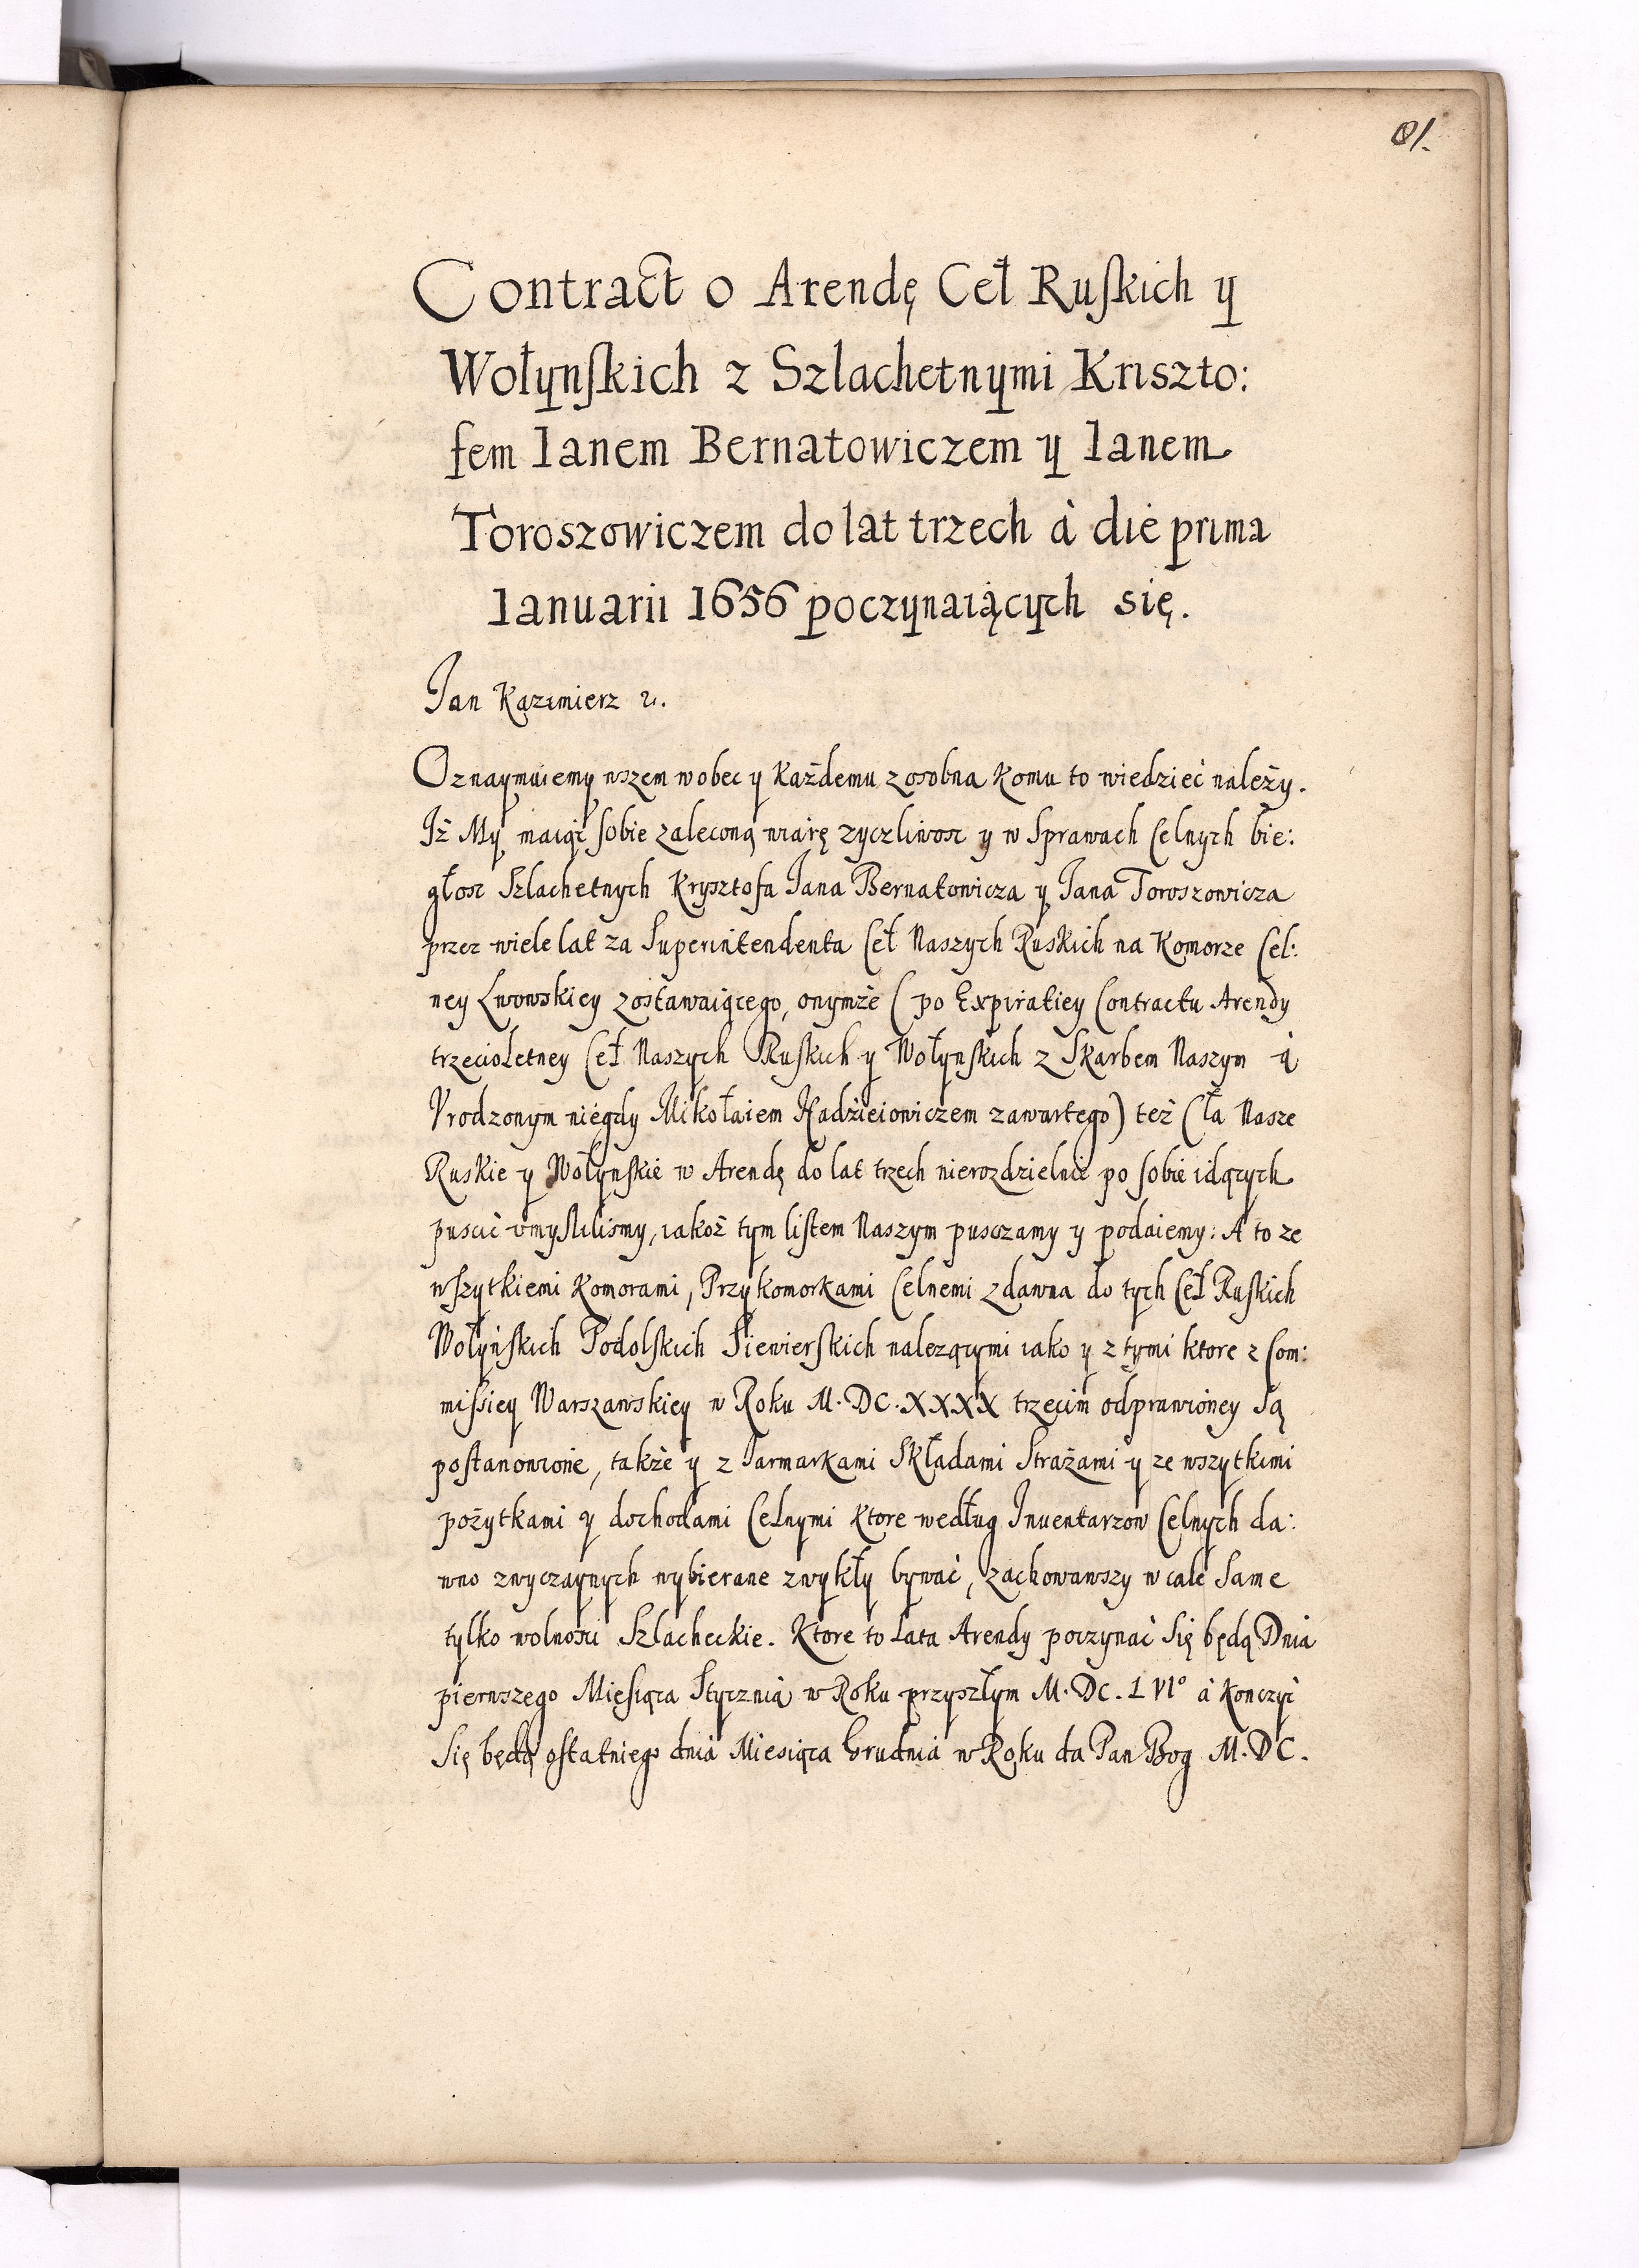 81.
Contract o Arendę Ceł Ruſkich y
Wołynſkich z Szlachetnymi Kriszto:
fem Ianem Bernatowiczem y Ianem
Toroszowiczem do lat trzech à die prima
Ianuarii 1656 poczynaiących się.
Jan Kazimierz
Oznaymuiemy wszem wobec y Każdemu zosobna Komu to wiedzieć należy.
Iż My maiąc sobie zaleconą wiarę zyczliwosc y w Sprawach Celnych bie:
głosc Szlachetnych Krysztofa Jana Bernatowicza y Jana Toroszowicza
przez wiele lat za Superintendenta Ceł Naszych Ruskich na Komorze Cel:
ney Lwowskiey zostawaiącego, onymże (po Expiratiey Contractu Arendy
trzecioletney Ceł Naszych Ruſkich y Wołynſkich z Skarbem Naszym à
Vrodzonym niegdy Mikołaiem Hadzieiowiczem zawartego) też Cła Nasze
Ruskie y Wołynſkie w Arendę do lat trzech nierozdzielnie po sobie idących
puscić vmyslilismy, iakoż tym liſtem Naszym pusczamy y podaiemy: A to ze
wſzytkiemi Komorami, Przykomorkami Celnemi zdawna do tych Ceł Ruſkich
Wołyńſkich Podolſkich Siewierſkich nalezącymi iako y z tymi ktore z Com:
miſsiey Warszawskiey w Roku M.DC.XXXX trzecim odprawioney Są
poſtanowione, także y z Jarmarkami Składami Strażami y ze wszytkimi
pożytkami y dochodami Celnymi Ktore według Inuentarzow Celnych da:
wno zwyczaynych wybierane zwykły bywać, zachowawszy w cale Same
tylko wolnosci Szlacheckie. Ktore to Lata Arendy poczynać Się będą Dnia
pierwszego Miesiąca Stycznia w Roku przyszłym M.DC.LVI° à Konczyć
Się będą oſtatniego dnia Miesiąca Grudnia w Roku da Pan Bog M.DC.